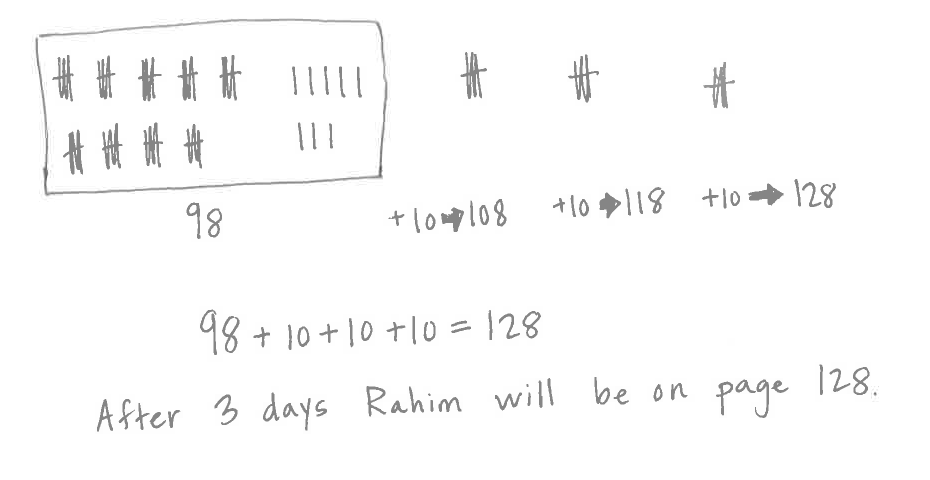 98 +10→108 +10→118 +10→128
98 + 10 + 10 + 10 = 128
After 3 days Rahim will be on page 128.